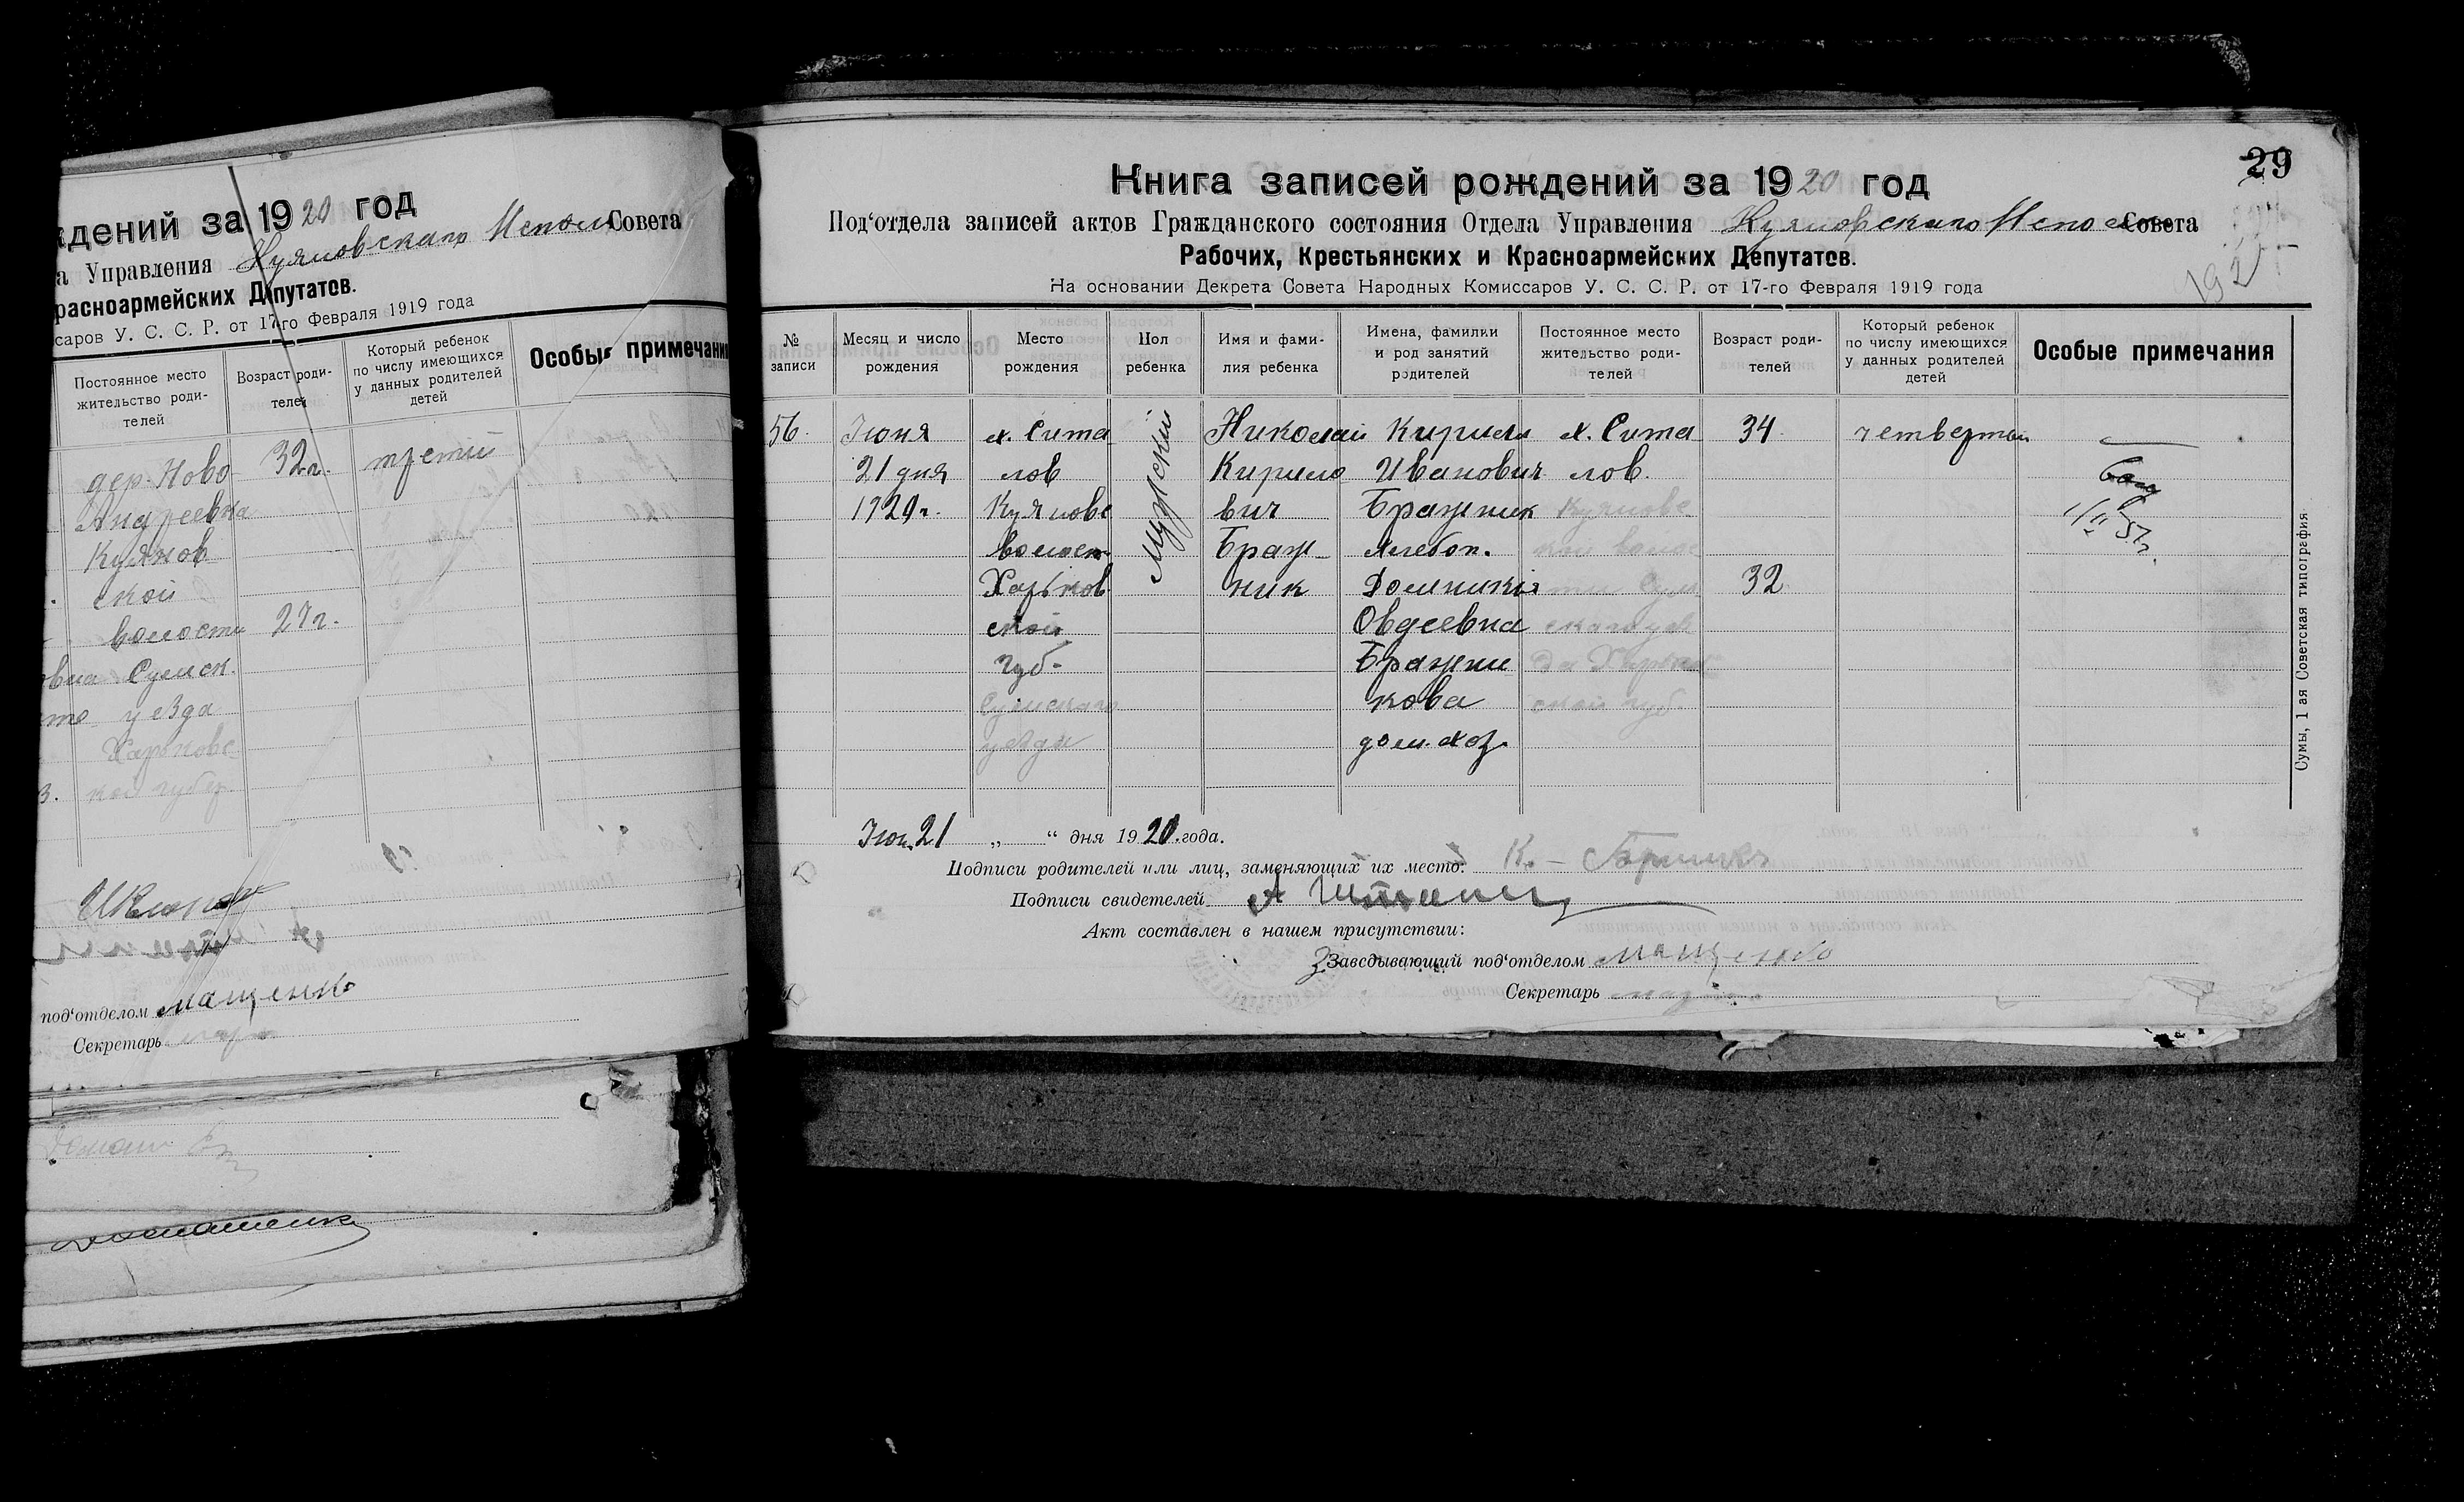 ждений за 1920 год
а Управления Куяновскаго Исполк Совета
расноармейских Депутатов.
саров У. С. С. Р. от 17-го Февраля 1919 года
Постоянное место жительство роди-телей
Возраст роди-телей
Который ребенок по числу имеющихся у данных родителей детей
Особые примечания
дер. Ново- 32 г. третий
Андреевка
Куянов
ской
волости 27 г.
овна Сумск.
уезда
Харьковс
кой губер.
под‘отделом Мащенко
Секретарь
Домашенко
29
Книга записей рождений за 1920 год
Под‘отдела записей актов Гражданского состояния Отдела Управления Куяновскаго Исполк Совета
Рабочих, Крестьянских и Красноармейских Депутатов.
На основании Декрета Совета Народных Комиссаров У. С. С. Р. от 17-го Февраля 1919 года
№ записи
Месяц и число рождения
Место рождения
Пол ребенка
Имя и фами-лия ребенка
Имена, фамилии и род занятий родителей
Постоянное место жительство роди-телей
Возраст роди-телей
Который ребенок по числу имеющихся у данных родителей детей
Особые примечания
56. Июня х. Сита Мужской Николай Кирилл х. Сита 34 четвертый
21 дня лов Кирило Иванович лов.
1920 г. Куяновс вич Бражник Куяновс
волост. Браж- хлебоп. кой волос
Харьков ник Домникия ти Сум 32
ской Овдеевна скаго уез
губ. Бражни да Харьков
Сумскаго кова ской губ.
уезда дом. хоз.
Июн. 21 „ “ дня 1920. года.
Подписи родителей или лиц, заменяющих их место: К.
Подписи свидетелей А
Акт составлен в нашем присутствии:
Заведывающий под‘отделом Мащенко
Секретарь
Сумы, 1 ая Советская типография